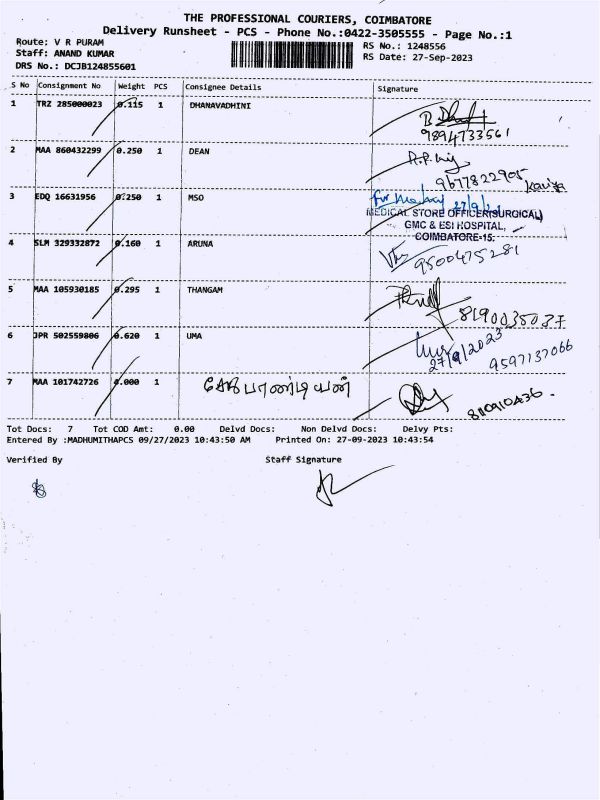 THE PROFESSIONAL COURIERS, COIMBATORE
Delivery Runsheet - PCS - Phone No.:0422-3505555 - Page No.:1
Route: V R PURAM
Staff: ANAND KUMAR
DRS No.: DCJB124855601
RS No.: 1248556
RS Date: 27-Sep-2023
S No Consignment No Weight PCS Consignee Details Signature
1 TRZ 285000023 0.115 1 DHANAVADHINI
9894733561
2 MAA 860432299 0.250 1 DEAN
9677822905
3 EDQ 16631956 0.250 1 MSO
MEDICAL STORE OFFICER(SURGICAL)
GMC & ESI HOSPITAL,
COIMBATORE-15.
4 SLM 329332872 0.160 1 ARUNA
9500475281
5 MAA 105930185 0.295 1 THANGAM
8190035037
6 JPR 502559806 0.620 1 UMA
27/9/2023
9597137066
7 MAA 101742726 0.000 1
810910436
Tot Docs: 7 Tot COD Amt: 0.00 Delvd Docs: Non Delvd Docs: Delvy Pts:
Entered By :MADHUMITHAPCS 09/27/2023 10:43:50 AM Printed On: 27-09-2023 10:43:54
Verified By Staff Signature